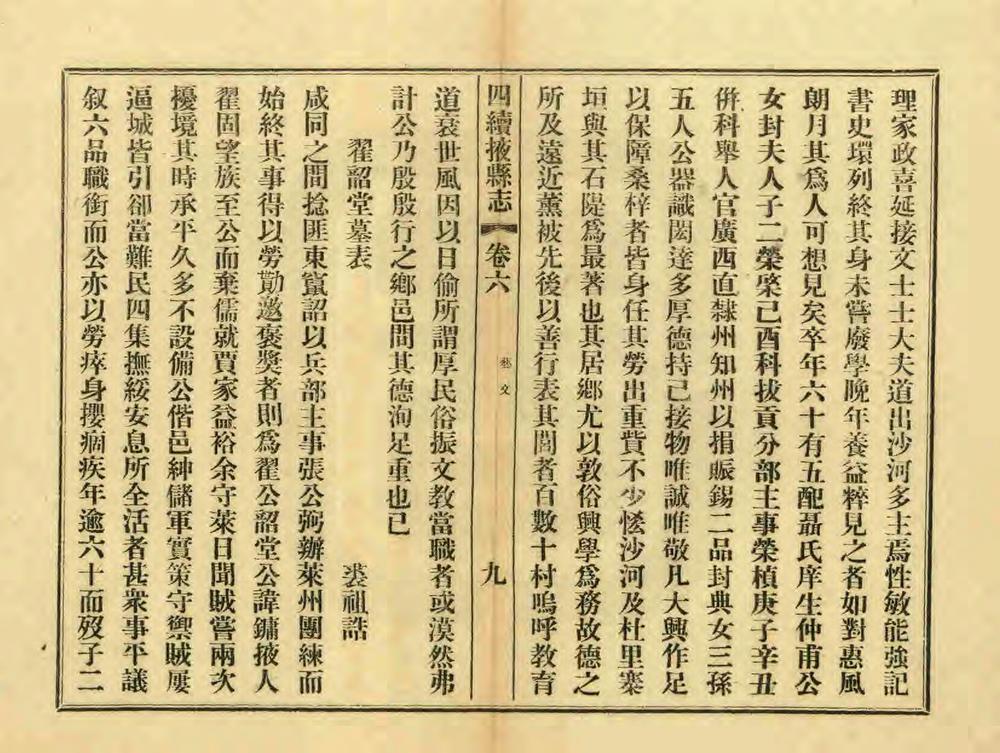 理家政喜延接文士士大夫道出沙河多主焉性敏能強記
書史環列終其身未嘗廢學晚年養益粹見之者如對惠風
朗月其爲人可想見矣卒年六十有五配聶氏庠生仲甫公
女封夫人子二榮棨己酉科拔貢分部主事榮楨庚子辛丑
併科舉人官廣西直隸州知州以捐賑錫二品封典女三孫
五人公器識閎達多厚德持己接物唯誠唯敬凡大興作足
以保障桑梓者皆身任其勞出重貲不少恡沙河及杜里寨
垣與其石隄爲最著也其居鄕尤以敦俗興學爲務故德之
所及遠近薰被先後以善行表其閭者百數十村嗚呼教育
四續掖縣志 卷六 藝文 九
道衰世風因以日偷所謂厚民俗振文教當職者或漠然弗
計公乃殷殷行之鄕邑間其德洵足重也已
翟韶堂墓表 裘祖誥
咸同之間捻匪東竄詔以兵部主事張公弼辦萊州團練而
始終其事得以勞勩邀褒獎者則爲翟公韶堂公諱鏞掖人
翟固望族至公而棄儒就賈家益裕余守萊日聞賊嘗兩次
擾境其時承平久多不設備公偕邑紳儲軍實策守禦賊屢
逼城皆引卻當難民四集撫綏安息所全活者甚衆事平議
叙六品職銜而公亦以勞瘁身攖痼疾年逾六十而歿子二